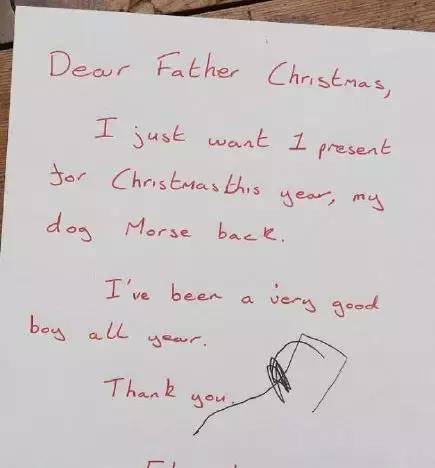 Dear Father Christmas,
I just want 1 present
for Christmas this year, my
dog Morse back.
I've been a very good
boy all year.
Thank you.